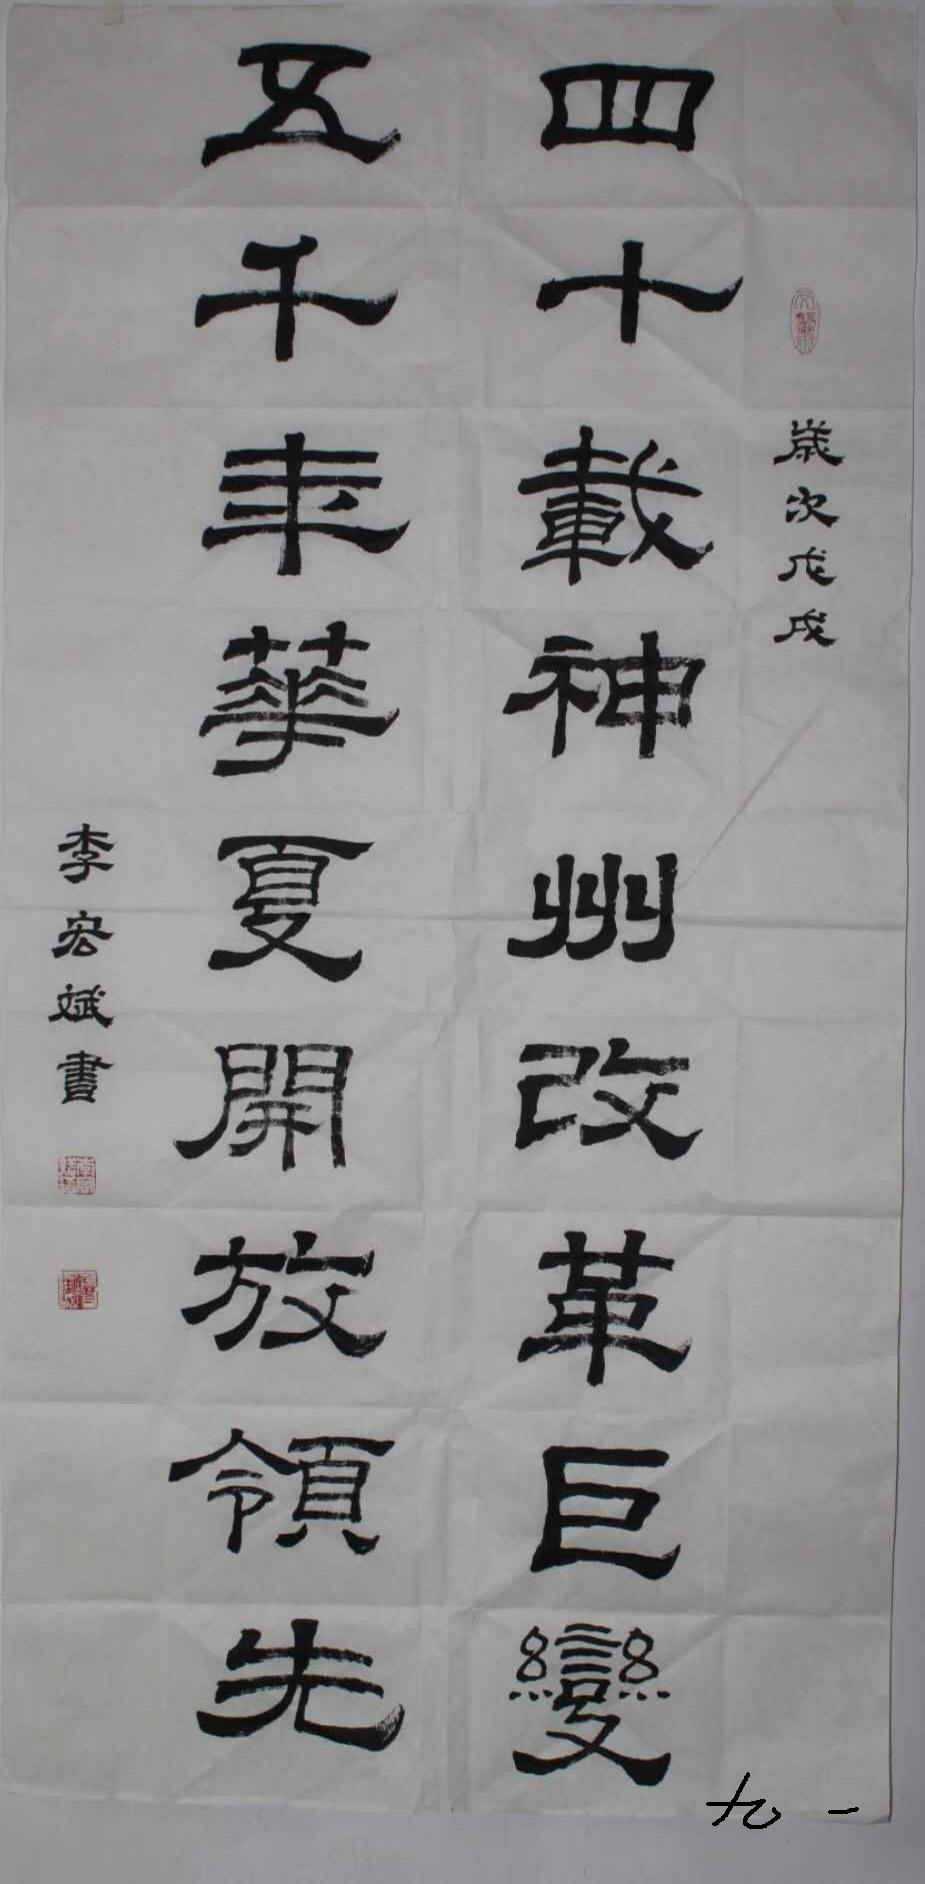 歲次戊戌
四十載神州改革巨變
五千年華夏開放領先
李宏斌書